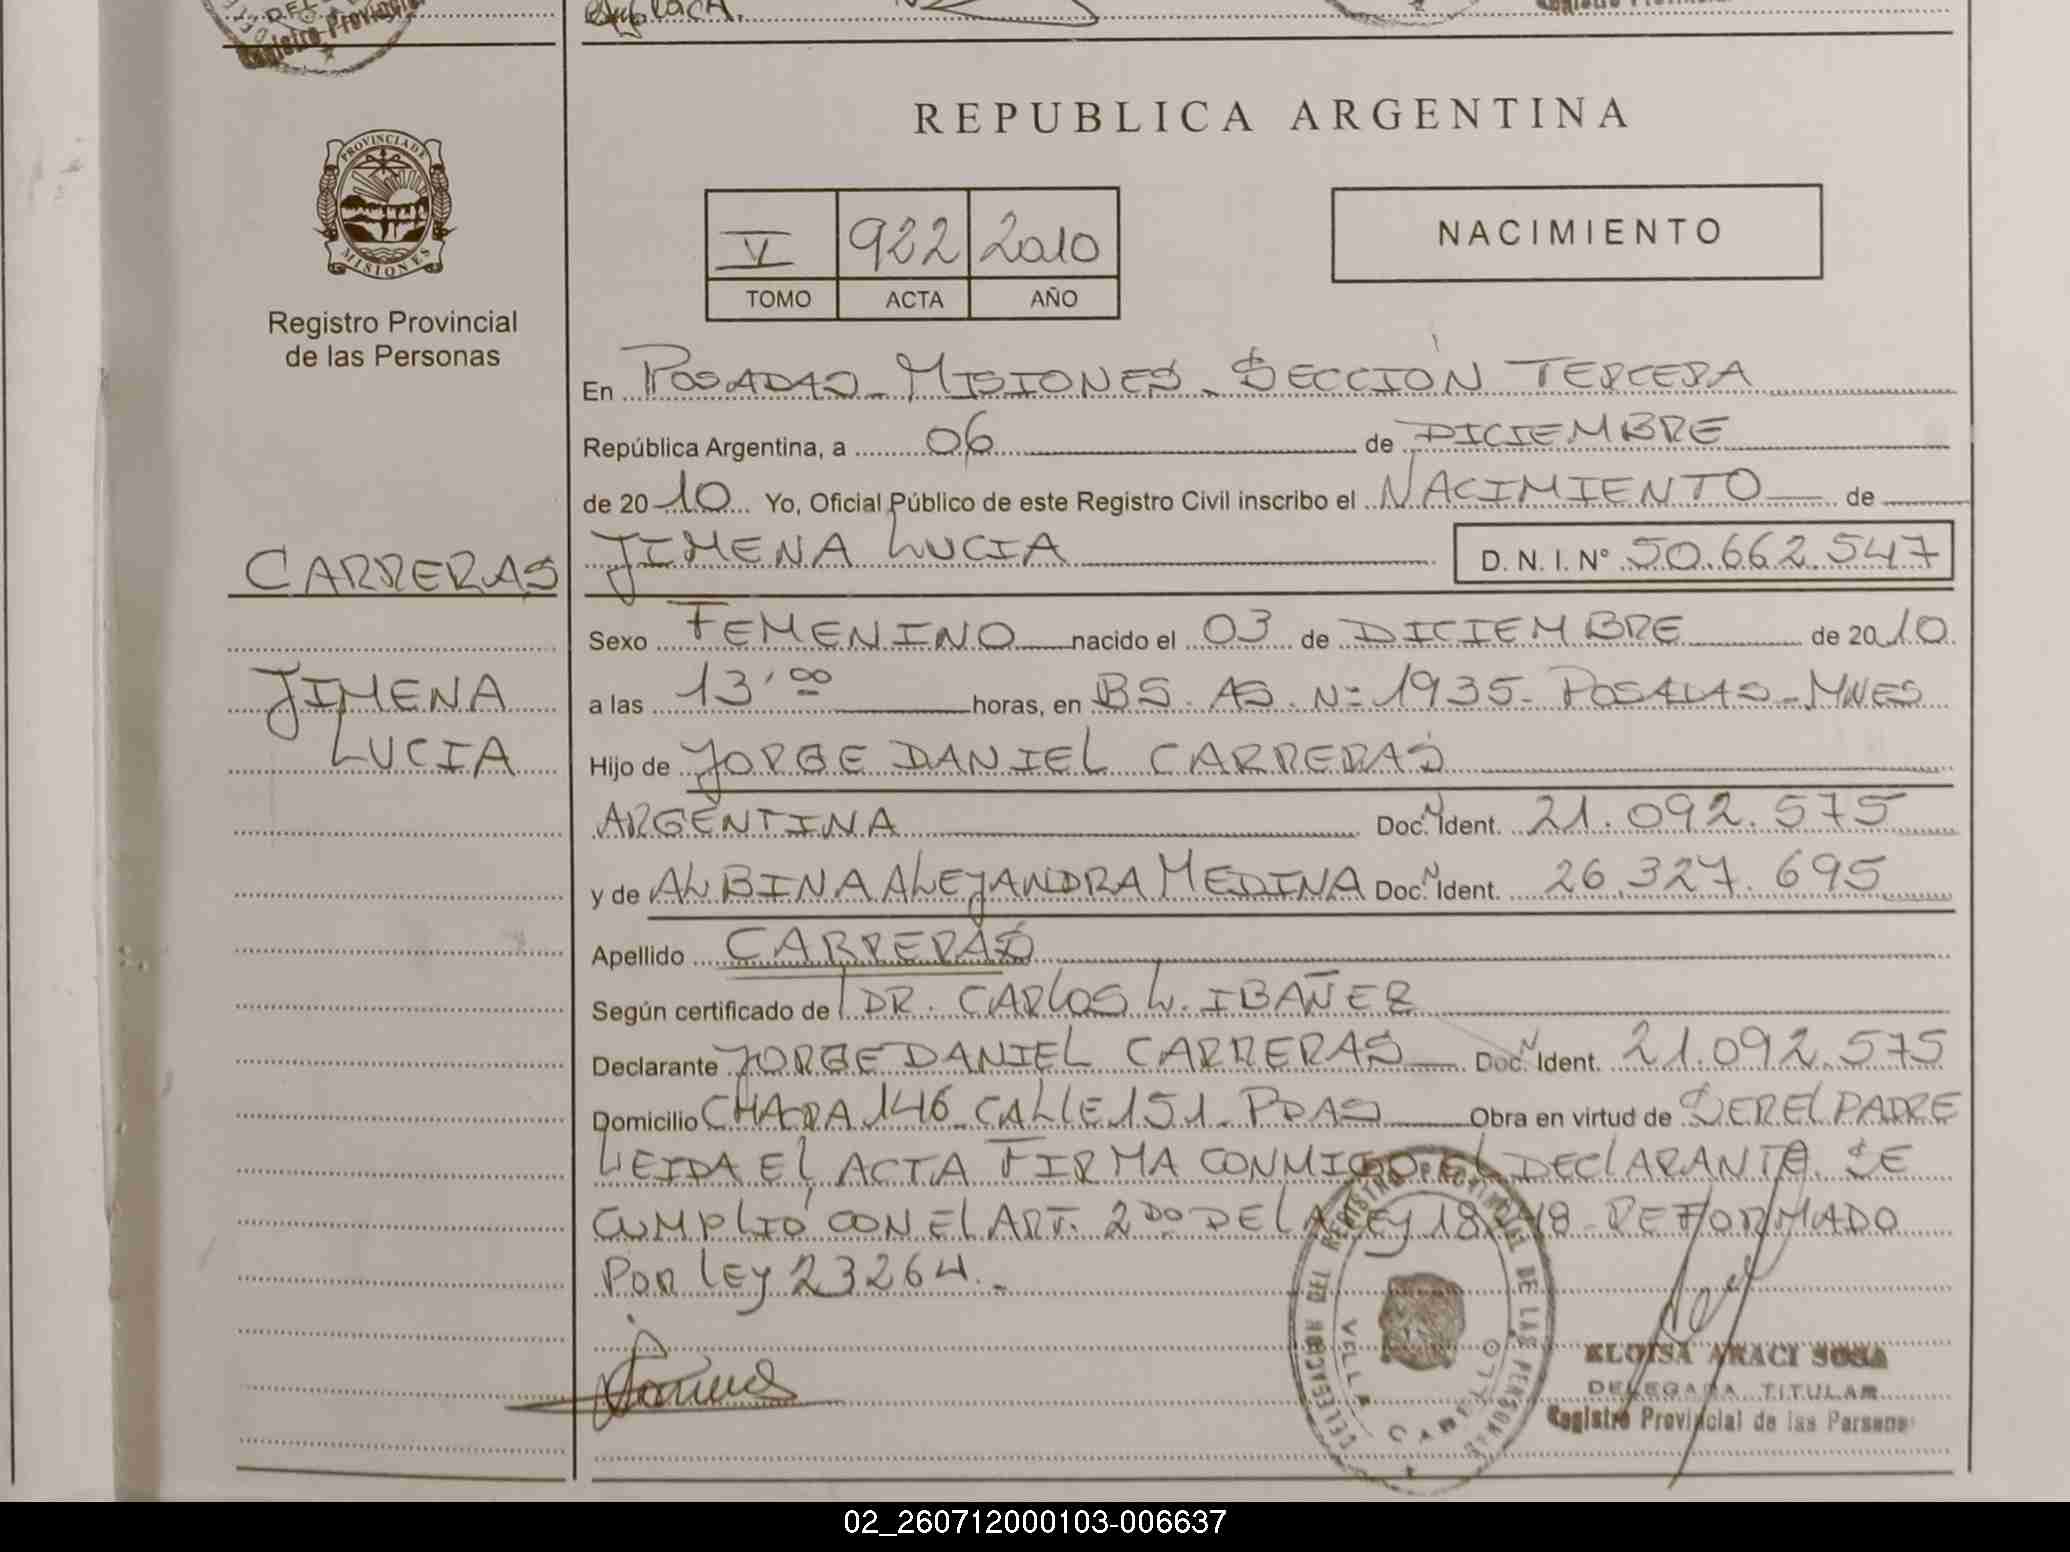 Registro Provincial
REPUBLICA ARGENTINA
PROVINCIA DE
MISIONES
Registro Provincial
de las Personas
V 922 2010
TOMO ACTA AÑO
NACIMIENTO
En POSADAS - MISIONES - SECCIÓN TERCERA
República Argentina, a 06 de DICIEMBRE
de 2010 Yo, Oficial Público de este Registro Civil inscribo el NACIMIENTO de
CARRERAS
JIMENA LUCIA D. N. I. Nº 50.662.547
Sexo FEMENINO nacido el 03 de DICIEMBRE de 2010
JIMENA
LUCIA
a las 13'00 horas, en BS. AS. Nº 1935 - POSADAS - MNES
Hijo de JORGE DANIEL CARRERAS
ARGENTINA Doc. N Ident. 21.092.575
y de ALBINA ALEJANDRA MEDINA Doc. N Ident. 26.327.695
Apellido CARRERAS
Según certificado de DR. CARLOS L. IBAÑEZ
Declarante JORGE DANIEL CARRERAS Doc. N Ident. 21.092.575
Domicilio CHACRA 146 - CALLE 151 - PDAS Obra en virtud de SER EL PADRE
LEIDA EL ACTA FIRMA CONMIGO EL DECLARANTE. SE
CUMPLIÓ CON EL ART. 2DO DE LA LEY 18248 - REFORMADO
POR LEY 23264.-
DELEGACION DEL REGISTRO PROVINCIAL DE LAS PERSONAS
VILLA CABELLO
ELOISA ARACI SOSA
DELEGADA TITULAR
Registro Provincial de las Personas
02_260712000103-006637